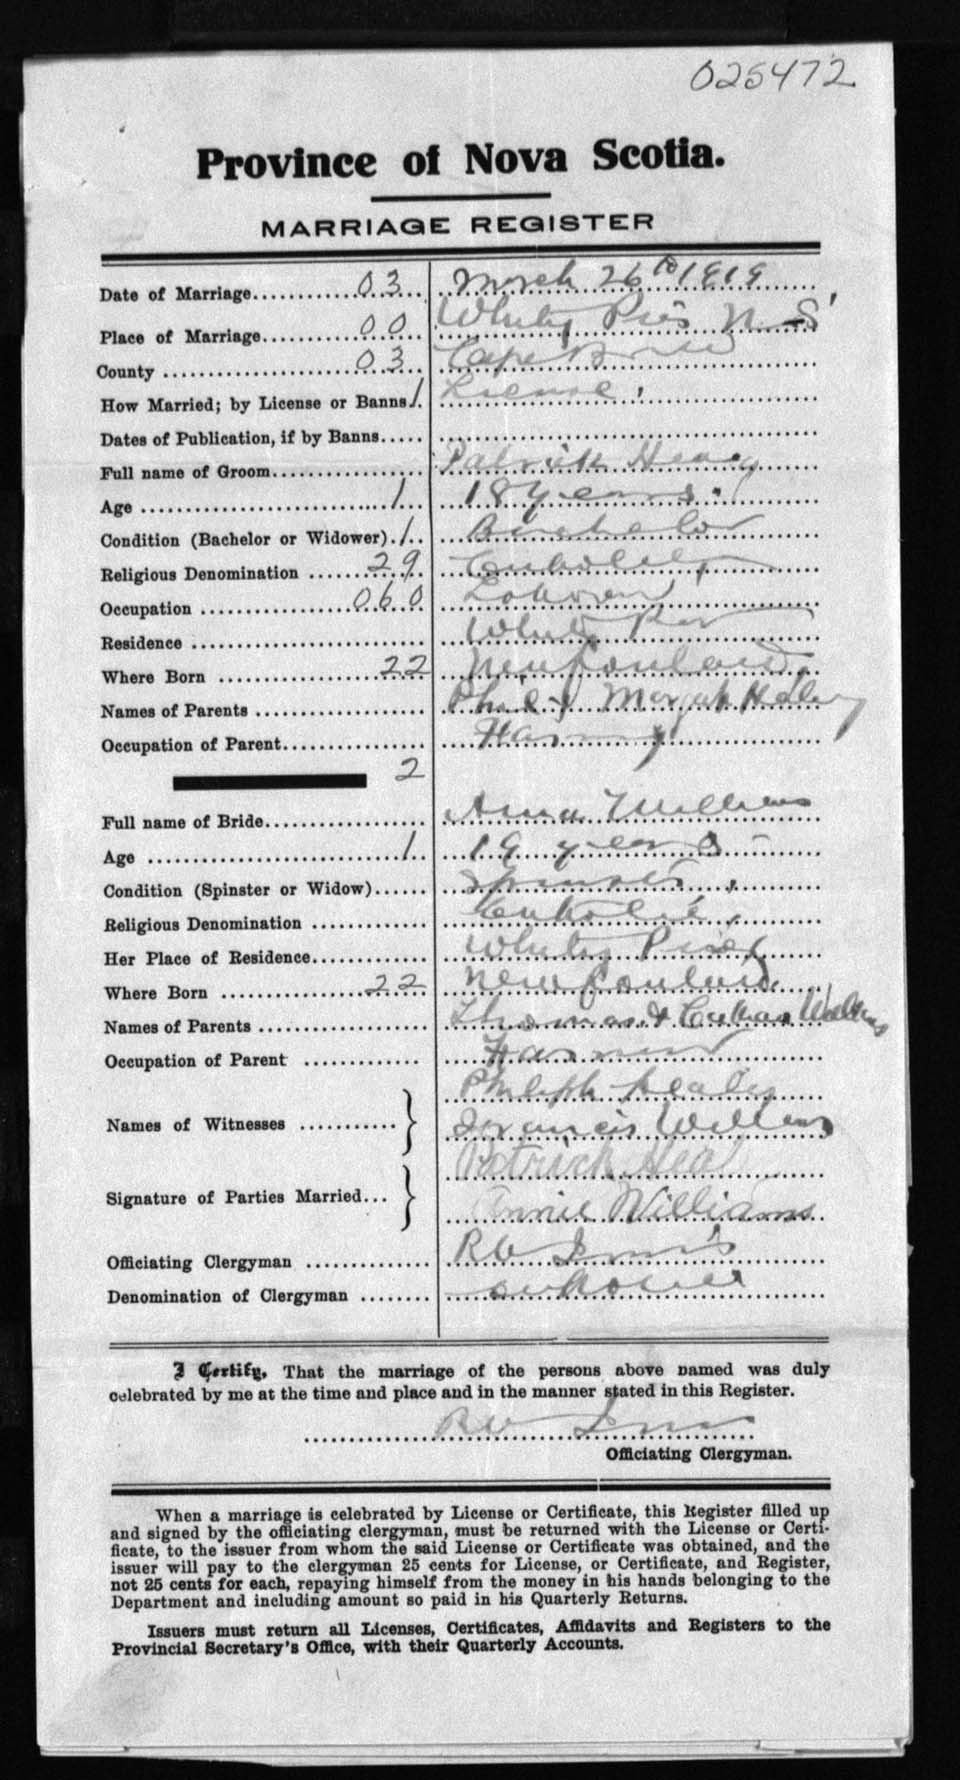 025472
Province of Nova Scotia.
MARRIAGE REGISTER
Date of Marriage 03 March 26th 1919
Place of Marriage 00 Whitney Pier N.S.
County 03 Cape Breton
How Married; by License or Banns 1 License
Dates of Publication, if by Banns
Full name of Groom Patrick Healey
Age 1 18 years
Condition (Bachelor or Widower) 1 Bachelor
Religious Denomination 29 Catholic
Occupation 060
Residence Whitney Pier
Where Born 22 Newfoundland
Names of Parents Philip Healey
Occupation of Parent
2
Full name of Bride Williams
Age 1 19 years
Condition (Spinster or Widow) Spinster
Religious Denomination Catholic
Her Place of Residence Whitney Pier
Where Born 22 Newfoundland
Names of Parents Thomas &
Occupation of Parent Farmer
Healey
Names of Witnesses
Francis Williams
Patrick Heal
Signature of Parties Married
Annie Williams
Officiating Clergyman
Denomination of Clergyman
I Certify, That the marriage of the persons above named was duly
celebrated by me at the time and place and in the manner stated in this Register.
Officiating Clergyman.
When a marriage is celebrated by License or Certificate, this Register filled up
and signed by the officiating clergyman, must be returned with the License or Certi-
ficate, to the issuer from whom the said License or Certificate was obtained, and the
issuer will pay to the clergyman 25 cents for License, or Certificate, and Register,
not 25 cents for each, repaying himself from the money in his hands belonging to the
Department and including amount so paid in his Quarterly Returns.
Issuers must return all Licenses, Certificates, Affidavits and Registers to the
Provincial Secretary's Office, with their Quarterly Accounts.